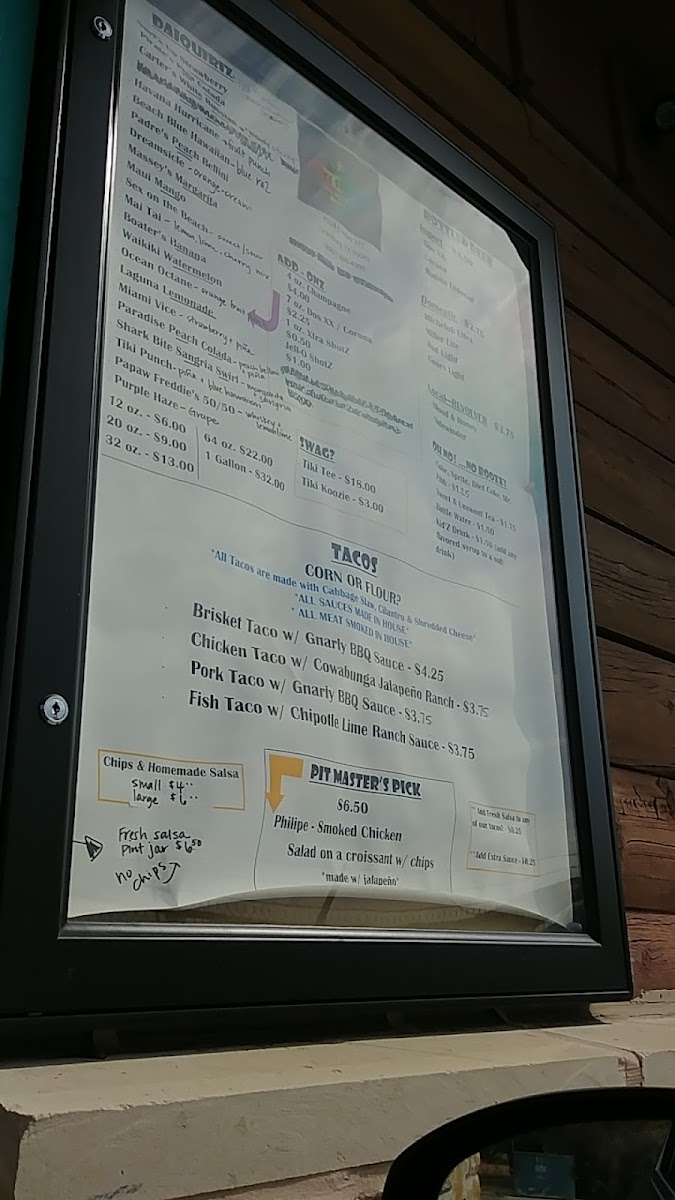 DAIQUIRIZ
Strawberry
Colada
Carter's White
Havana Hurricane - fruit punch
Beach Blue Hawaiian - blue raz
Padre's Peach Bellini
Dreamsicle - orange-cream
Massey's Margarita
Maui Mango
Sex on the Beach - sweet/sour
Mai Tai - lemon, lime, cherry mix
Boater's Banana
Waikiki Watermelon
Ocean Octane - orange fruit
Laguna Lemonade
Miami Vice - strawberry + piña
Paradise Peach Colada - peach bellini + piña
Shark Bite Sangria Swirl - margarita + sangria
Tiki Punch - piña + blue hawaiian
Papaw Freddie's 50/50 - whiskey + lemonlime
Purple Haze - Grape
12 oz. - $6.00
20 oz. - $9.00
32 oz. - $13.00
64 oz. $22.00
1 Gallon - $32.00
ADD - ONZ
4 oz. Champagne
$4.00
7 oz. Dos XX / Corona
$2.25
1 oz. Xtra ShotZ
$0.50
Jell-O ShotZ
$1.00
SWAG?
Tiki Tee - $18.00
Tiki Koozie - $3.00
BOTTLED BEER
Dos XX
Corona
Modelo Especial
Domestic $2.75
Michelob Ultra
Miller Lite
Bud Light
Coors Light
Local - REVOLVER $3.75
Blood & Honey
Sidewinder
OH NO! ...NO BOOZE?
Coke, Sprite, Diet Coke, Dr.
Pibb - $1.25
Sweet & Unsweet Tea - $1.75
Bottle Water - $1.50
Kid'Z Drink - $1.50 (add any
flavored syrup to a soft
drink)
TACOS
CORN OR FLOUR?
*All Tacos are made with Cabbage Slaw, Cilantro & Shredded Cheese*
*ALL SAUCES MADE IN HOUSE*
* ALL MEAT SMOKED IN HOUSE*
Brisket Taco w/ Gnarly BBQ Sauce - $4.25
Chicken Taco w/ Cowabunga Jalapeño Ranch - $3.75
Pork Taco w/ Gnarly BBQ Sauce - $3.75
Fish Taco w/ Chipotle Lime Ranch Sauce - $3.75
Chips & Homemade Salsa
small $4..
large $6..
Fresh salsa
Pint jar $6.50
no chips
PIT MASTER'S PICK
$6.50
Philipe - Smoked Chicken
Salad on a croissant w/ chips
*made w/ jalapeño*
**Add Fresh Salsa to any
of our tacos! - $0.25
**Add Extra Sauce - $0.25